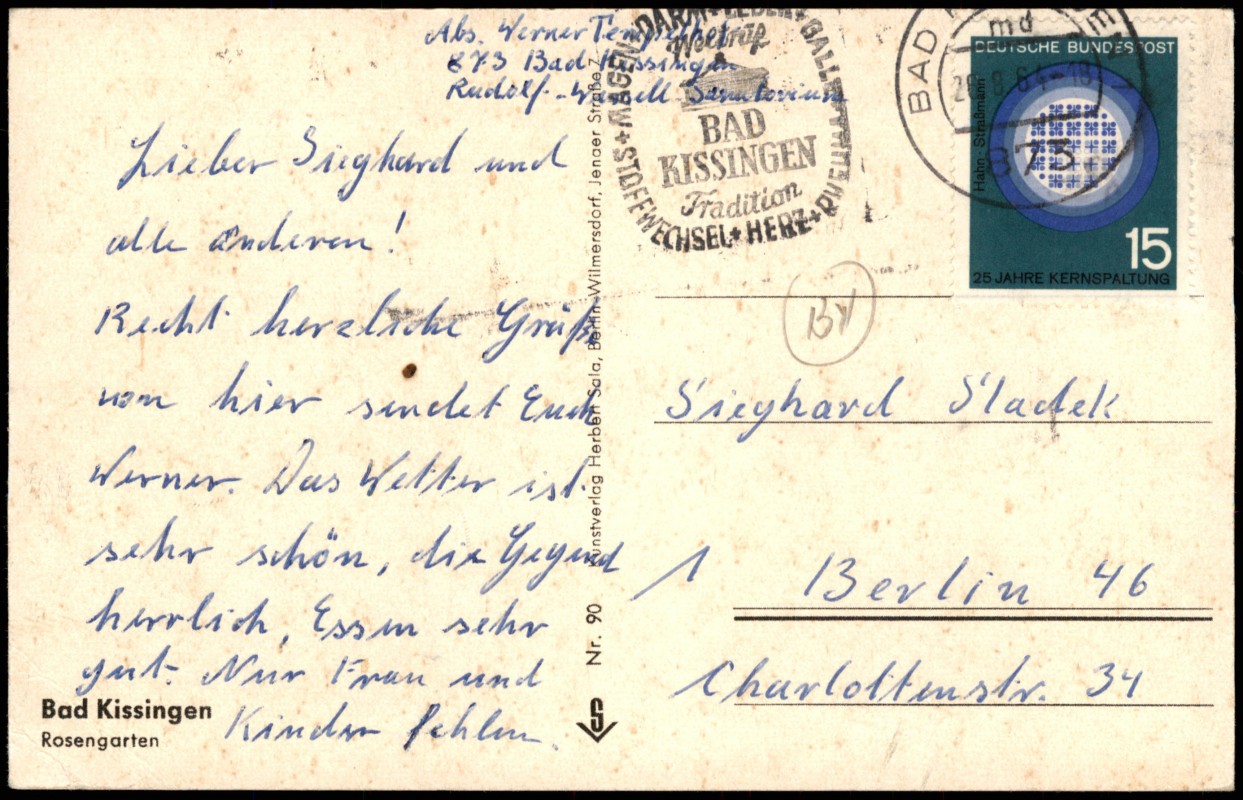 Abs. Werner
873 Bad Kissingen
Rudolf- Sanatorium
Lieber Sieghard und
alle anderen!
Recht herzliche Grüße
von hier sendet Euch
Werner. Das Wetter ist
sehr schön, die Gegend
herrlich, Essen sehr
gut. Nur Frau und
Kinder fehlen.
Bad Kissingen
Rosengarten
Nr. 90 Kunstverlag Herbert Sala, Berlin-Wilmersdorf, Jenaer Straße 7
S
MAGEN+DARM+LEBER+GALLE+
STOFFWECHSEL+HERZ+
Weltruf
BAD
KISSINGEN
Tradition
BAD
md
8.64-19
873
DEUTSCHE BUNDESPOST
Hahn Straßmann
15
25 JAHRE KERNSPALTUNG
Sieghard Sladek
1 Berlin 46
Charlottenstr. 34